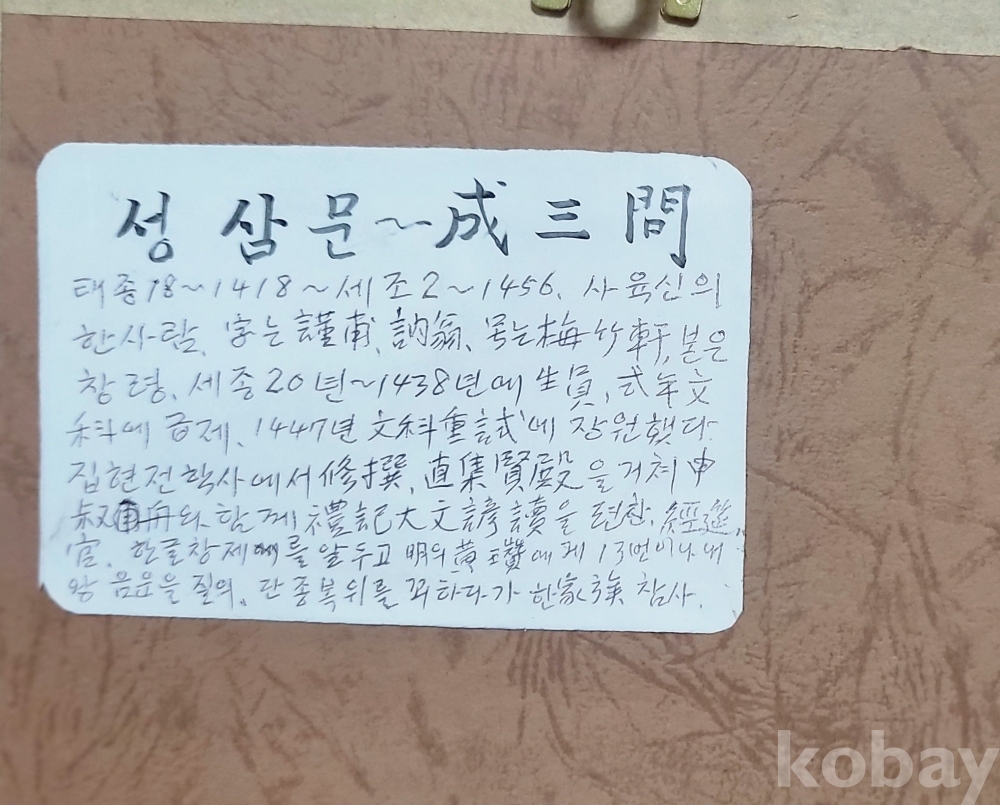 성 삼 문~成三問
태종18~1418~세조2~1456. 사육신의
한사람. 字는 謹甫、訥翁、号는 梅竹軒, 본은
창령. 세종20년~1438년에 生員, 式年文
科에 급제. 1447년 文科重試에 장원했다.
집현전학사에서 修撰, 直集賢殿을 거쳐 申
叔舟와 함께 禮記大文諺讀을 편찬. 経筵
官. 한글창제를 앞두고 明의 黃瓚에게 13번이나 내
왕 음운을 질의. 단종복위를 꾀하다가 한家族 참사.
kobay